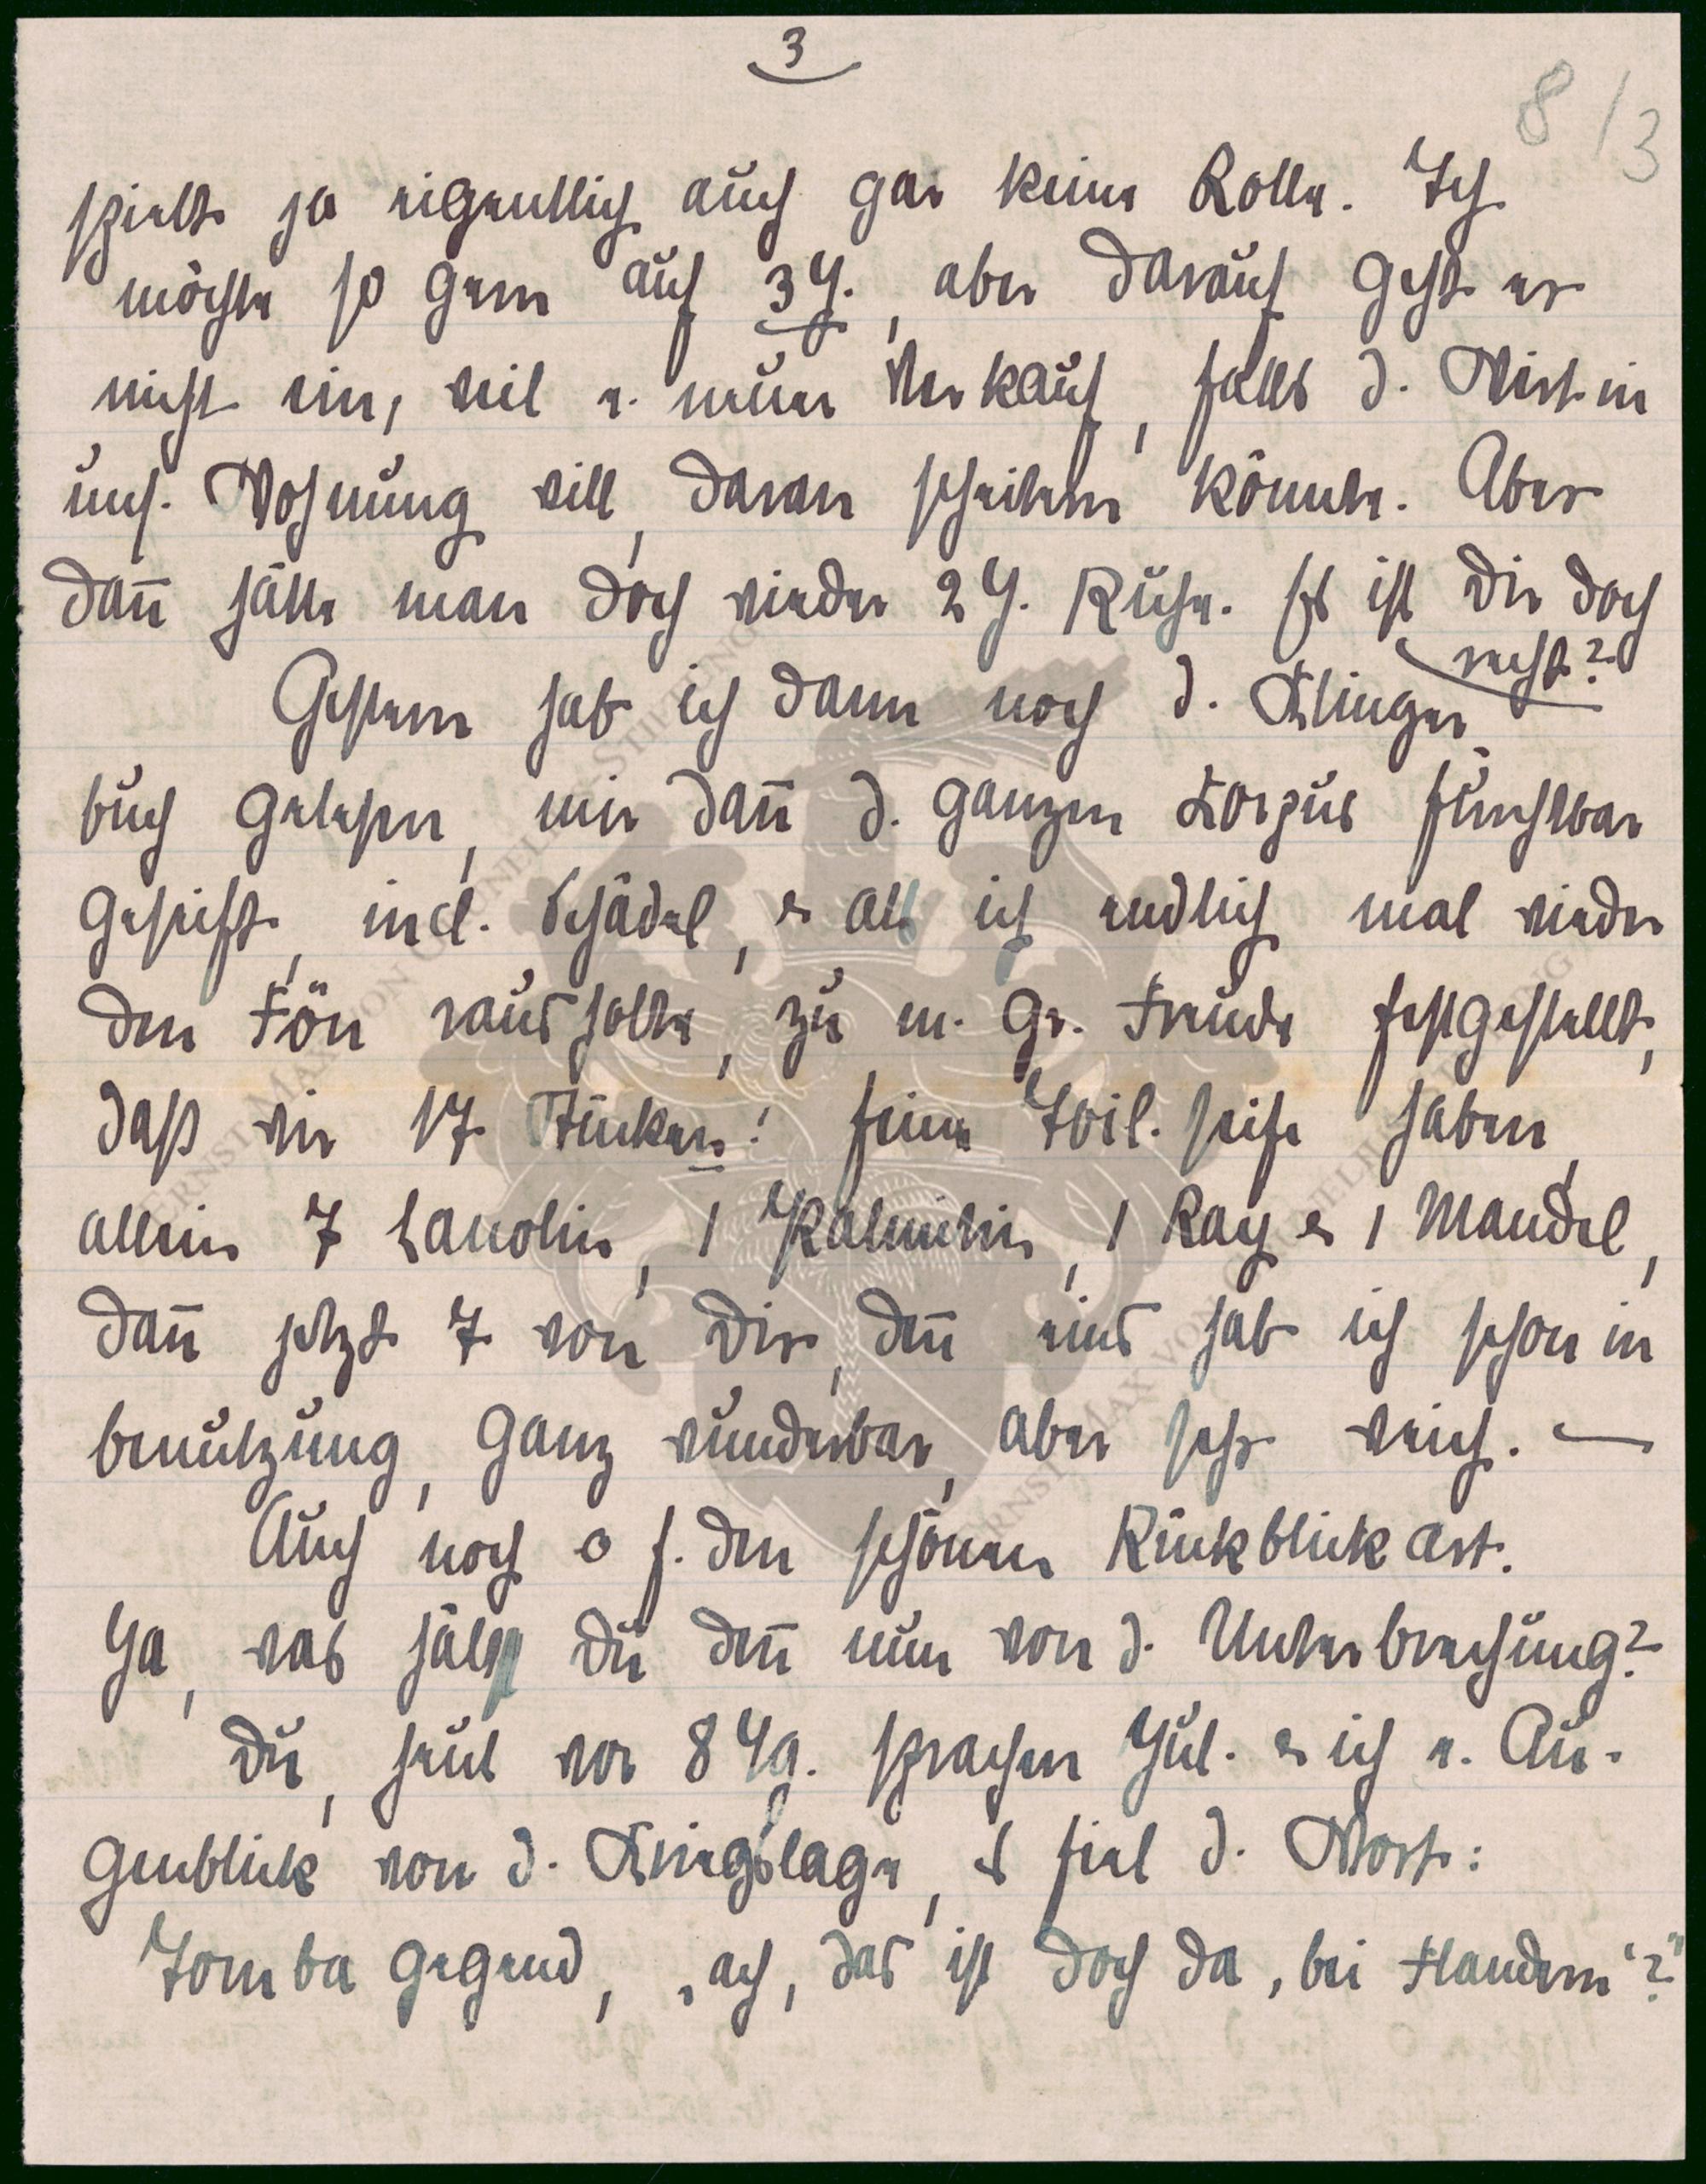 3
8/3
spielt ja eigentlich auch gar keine Rolle. Ich
möchte so gern auf 3 J., aber darauf geht er
nicht ein, weil e. neuer Verkauf, falls d. Wirt in
uns. Wohnung will, daran scheitern könnte. Aber
dann hätte man doch wieder 2 J. Ruhe. Es ist Dir doch
recht?
Gestern hab ich dann noch d. Klinger
buch gelesen, mir dann d. ganzen Korpus furchtbar
geseift, incl. Schädel, & als ich endlich mal wieder
den Fön raus holte, zu m. gr. Freude festgestellt,
daß wir 17 Stücker! feine Toil. seife haben,
allein 7 Lanolin, 1 Palmolin, 1 Ray & 1 Mandel,
dann jetzt 7 von Dir, denn eins hab ich schon in
benutzung, ganz wunderbar, aber sehr weich. —
Auch noch o f. den schönen Rückblick Art.
Ja, was hälst Du denn nun von d. Unterbrechung?
Du, heut vor 8 Tg. sprachen Jul. & ich e. Au-
genblick von d. Kriegslage, es fiel d. Wort:
Tomba gegend, „ach, das ist doch da, bei Flandern"?"
ERNST MAX VON GRUNELIUS-STIFTUNG
ERNST MAX VON GRUNELIUS-STIFTUNG